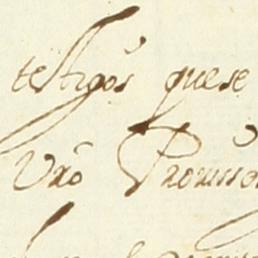 testigos quese
Vrô Prouisso